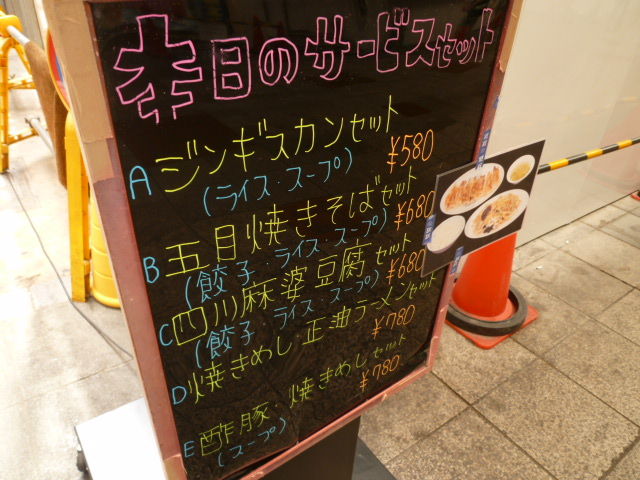 本日のサービスセット
A ジンギスカンセット ¥580
(ライス・スープ)
B 五目焼きそばセット ¥680
(餃子・ライス・スープ)
C 四川麻婆豆腐セット ¥680
(餃子・ライス・スープ)
D 焼きめし・正油ラーメンセット ¥780
E 酢豚・焼きめしセット ¥780
(スープ)